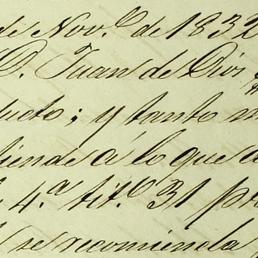 de Nov.e de 1832
D. Juan de Dios
ucto; y tanto m
tiende á lo que d
4.a tit.o 31 p
se recomienda